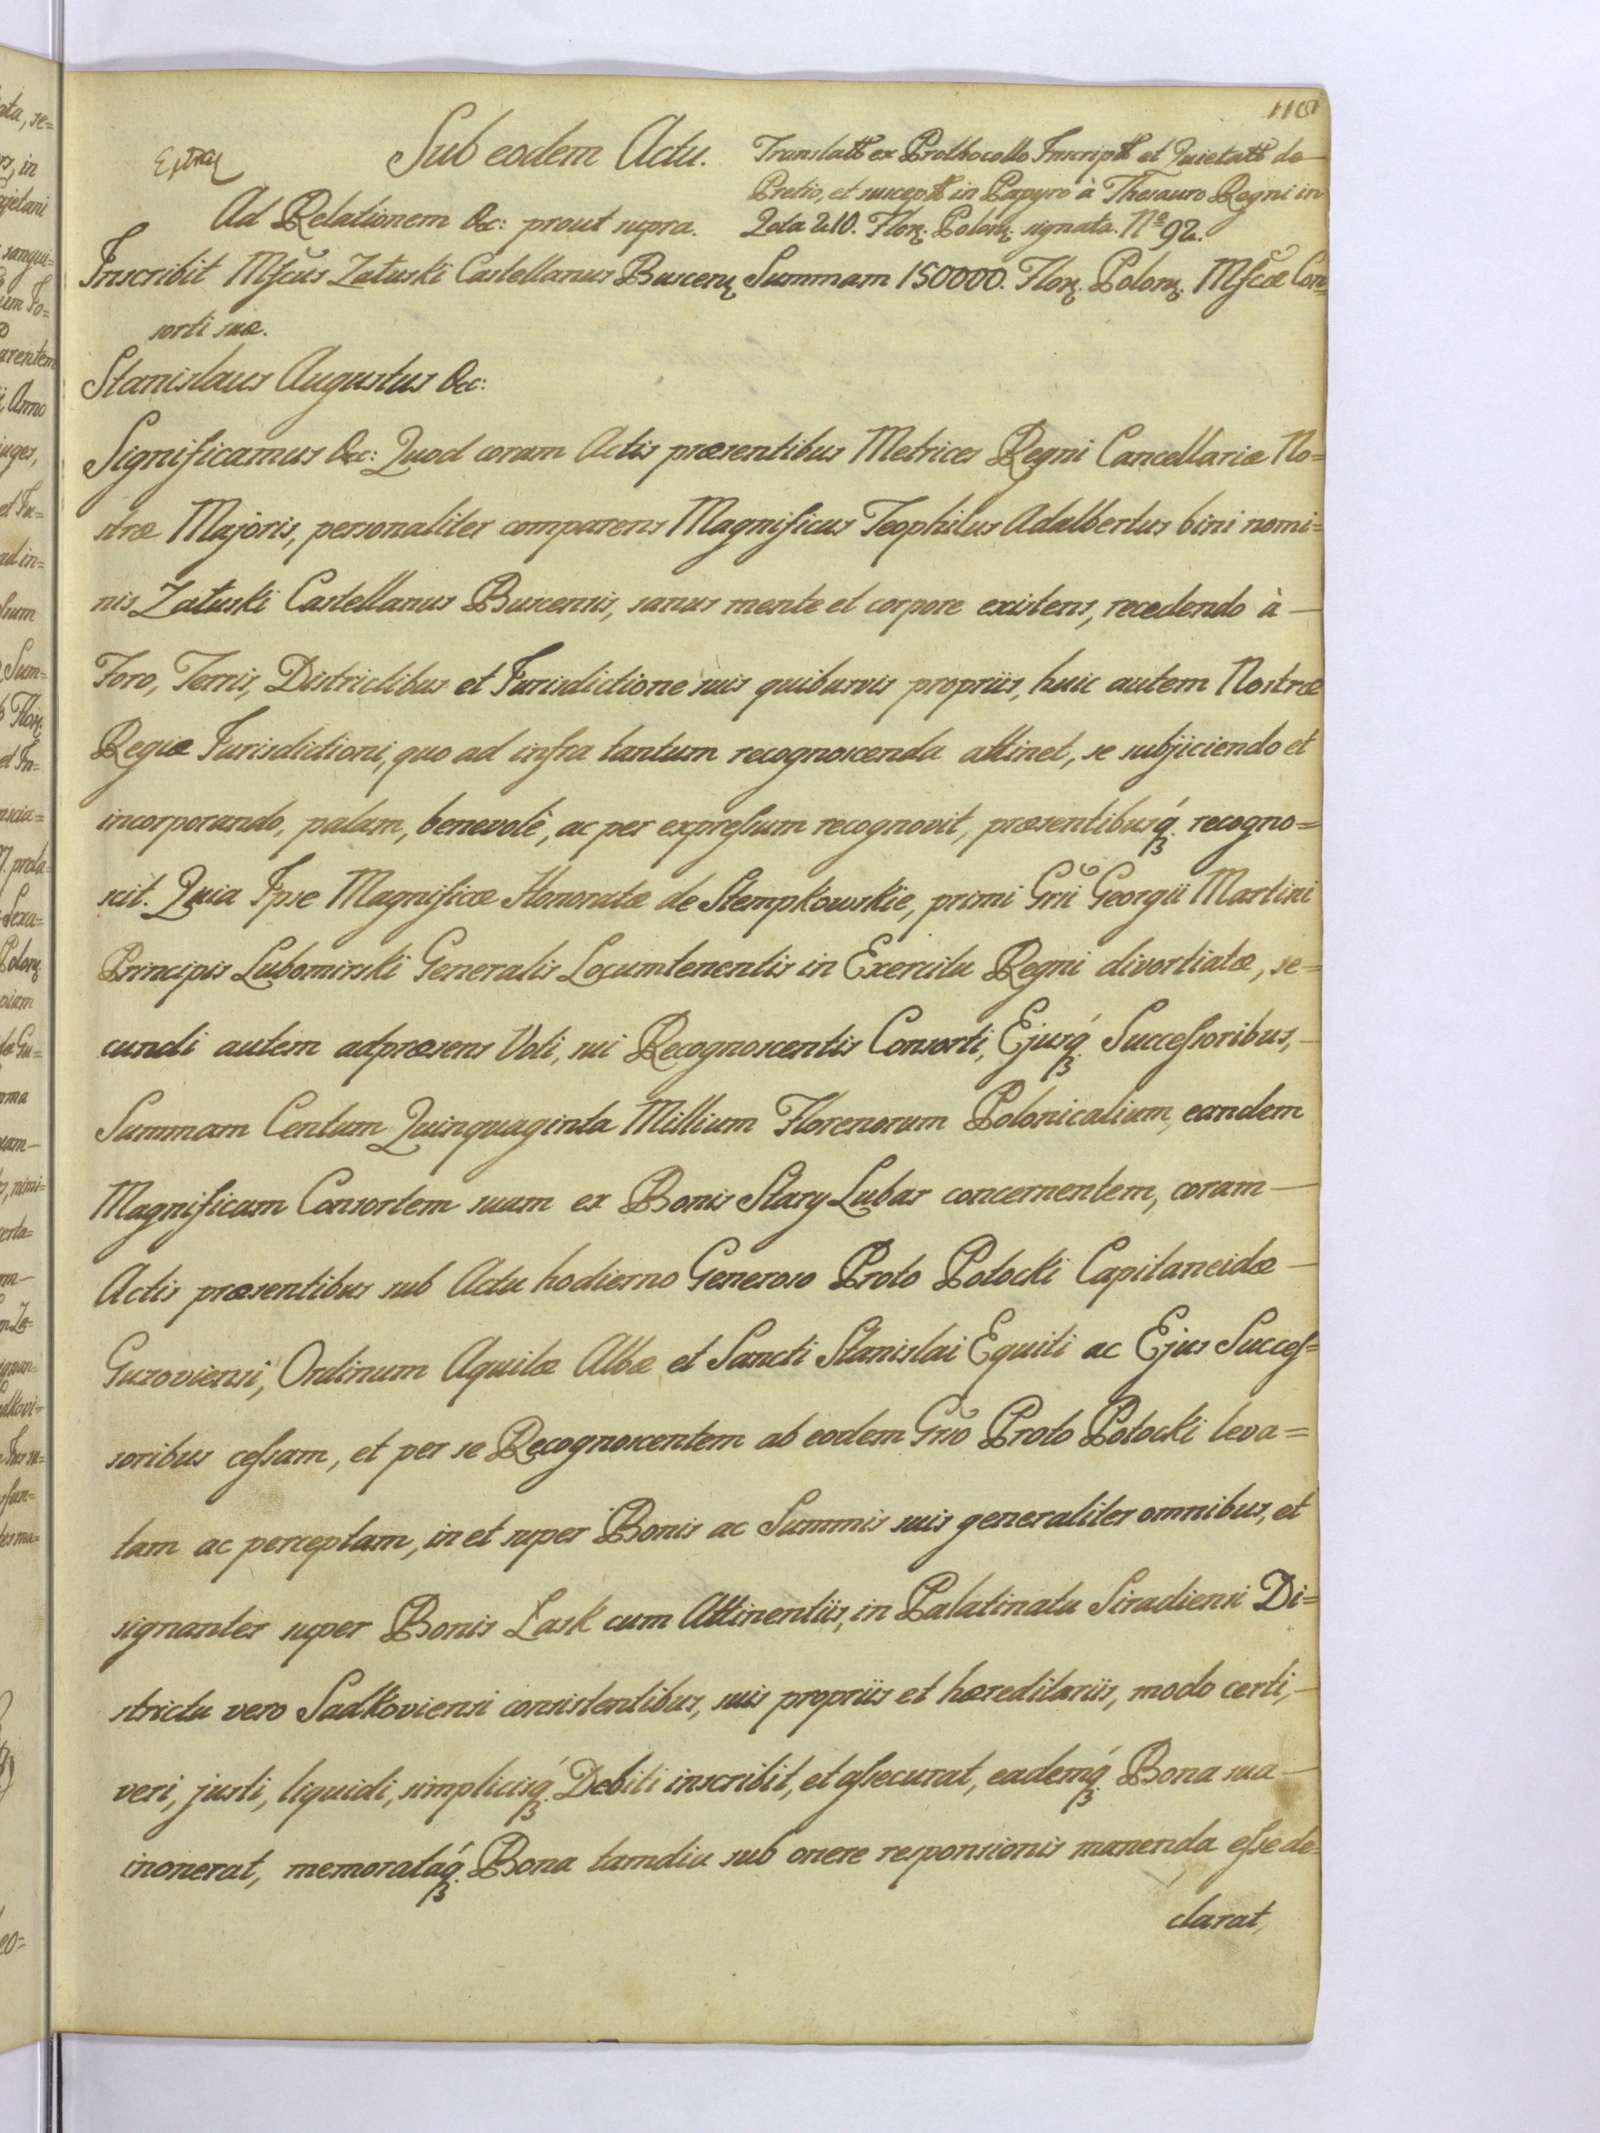 110
Extrad
Sub eodem Actu.
Translatt ex Prothocollo Inscriptt et Quietatt de
Pretio, et suscept in Papyro à Thesauro Regni in
Ad Relationem &c: prout supra.
Quota 210. Flor. Polon. signata. No 92.
Inscribit Mfcus Załuski Castellanus Buscen. Summam 150000. Flor. Polon. Mfcæ Con=
sorti suæ.
Stanislaus Augustus &c:
Significamus &c: Quod coram Actis præsentibus Metrices Regni Cancellariæ No=
stræ Majoris, personaliter comparens Magnificus Teophilus Adalbertus bini nomi=
nis Załuski Castellanus Buscensis, sanus mente et corpore existens, recedendo à
Foro, Terris, Districtibus et Jurisdictione suis quibusvis propriis, huic autem Nostræ
Regiæ Jurisdictioni, quo ad infra tantum recognoscenda attinet, se subjiciendo et
incorporando, palam, benevolè, ac per expressum recognovit, præsentibusq. recogno=
scit. Quia Ipse Magnificæ Honoratæ de Stempkowskie, primi Grsi Georgii Martini
Principis Lubomirski Generalis Locumtenentis in Exercitu Regni divortiatæ, se=
cundi autem adpræsens Voti, sui Recognoscentis Consorti, Ejusq. Successoribus,
Summam Centum Quinquaginta Millium Florenorum Polonicalium, eandem
Magnificam Consortem suam ex Bonis Stary Lubar concernentem, coram
Actis præsentibus sub Actu hodierno Generoso Proto Potocki Capitaneidæ
Guzoviensi, Ordinum Aquilæ Albæ et Sancti Stanislai Equiti ac Ejus Succes=
soribus cessam, et per se Recognoscentem ab eodem Grso Proto Potocki leva=
tam ac perceptam, in et super Bonis ac Summis suis generaliter omnibus, et
signanter super Bonis Łask cum Attinentiis, in Palatinatu Siradiensi Di=
strictu vero Sadkoviensi consistentibus, suis propriis et hæreditariis, modo certi,
veri, justi, liquidi, simplicisq. Debiti inscribit, et assecurat, eademq. Bona sua
inonerat, memorataq. Bona tamdiu sub onere responsionis manenda esse de
clarat,